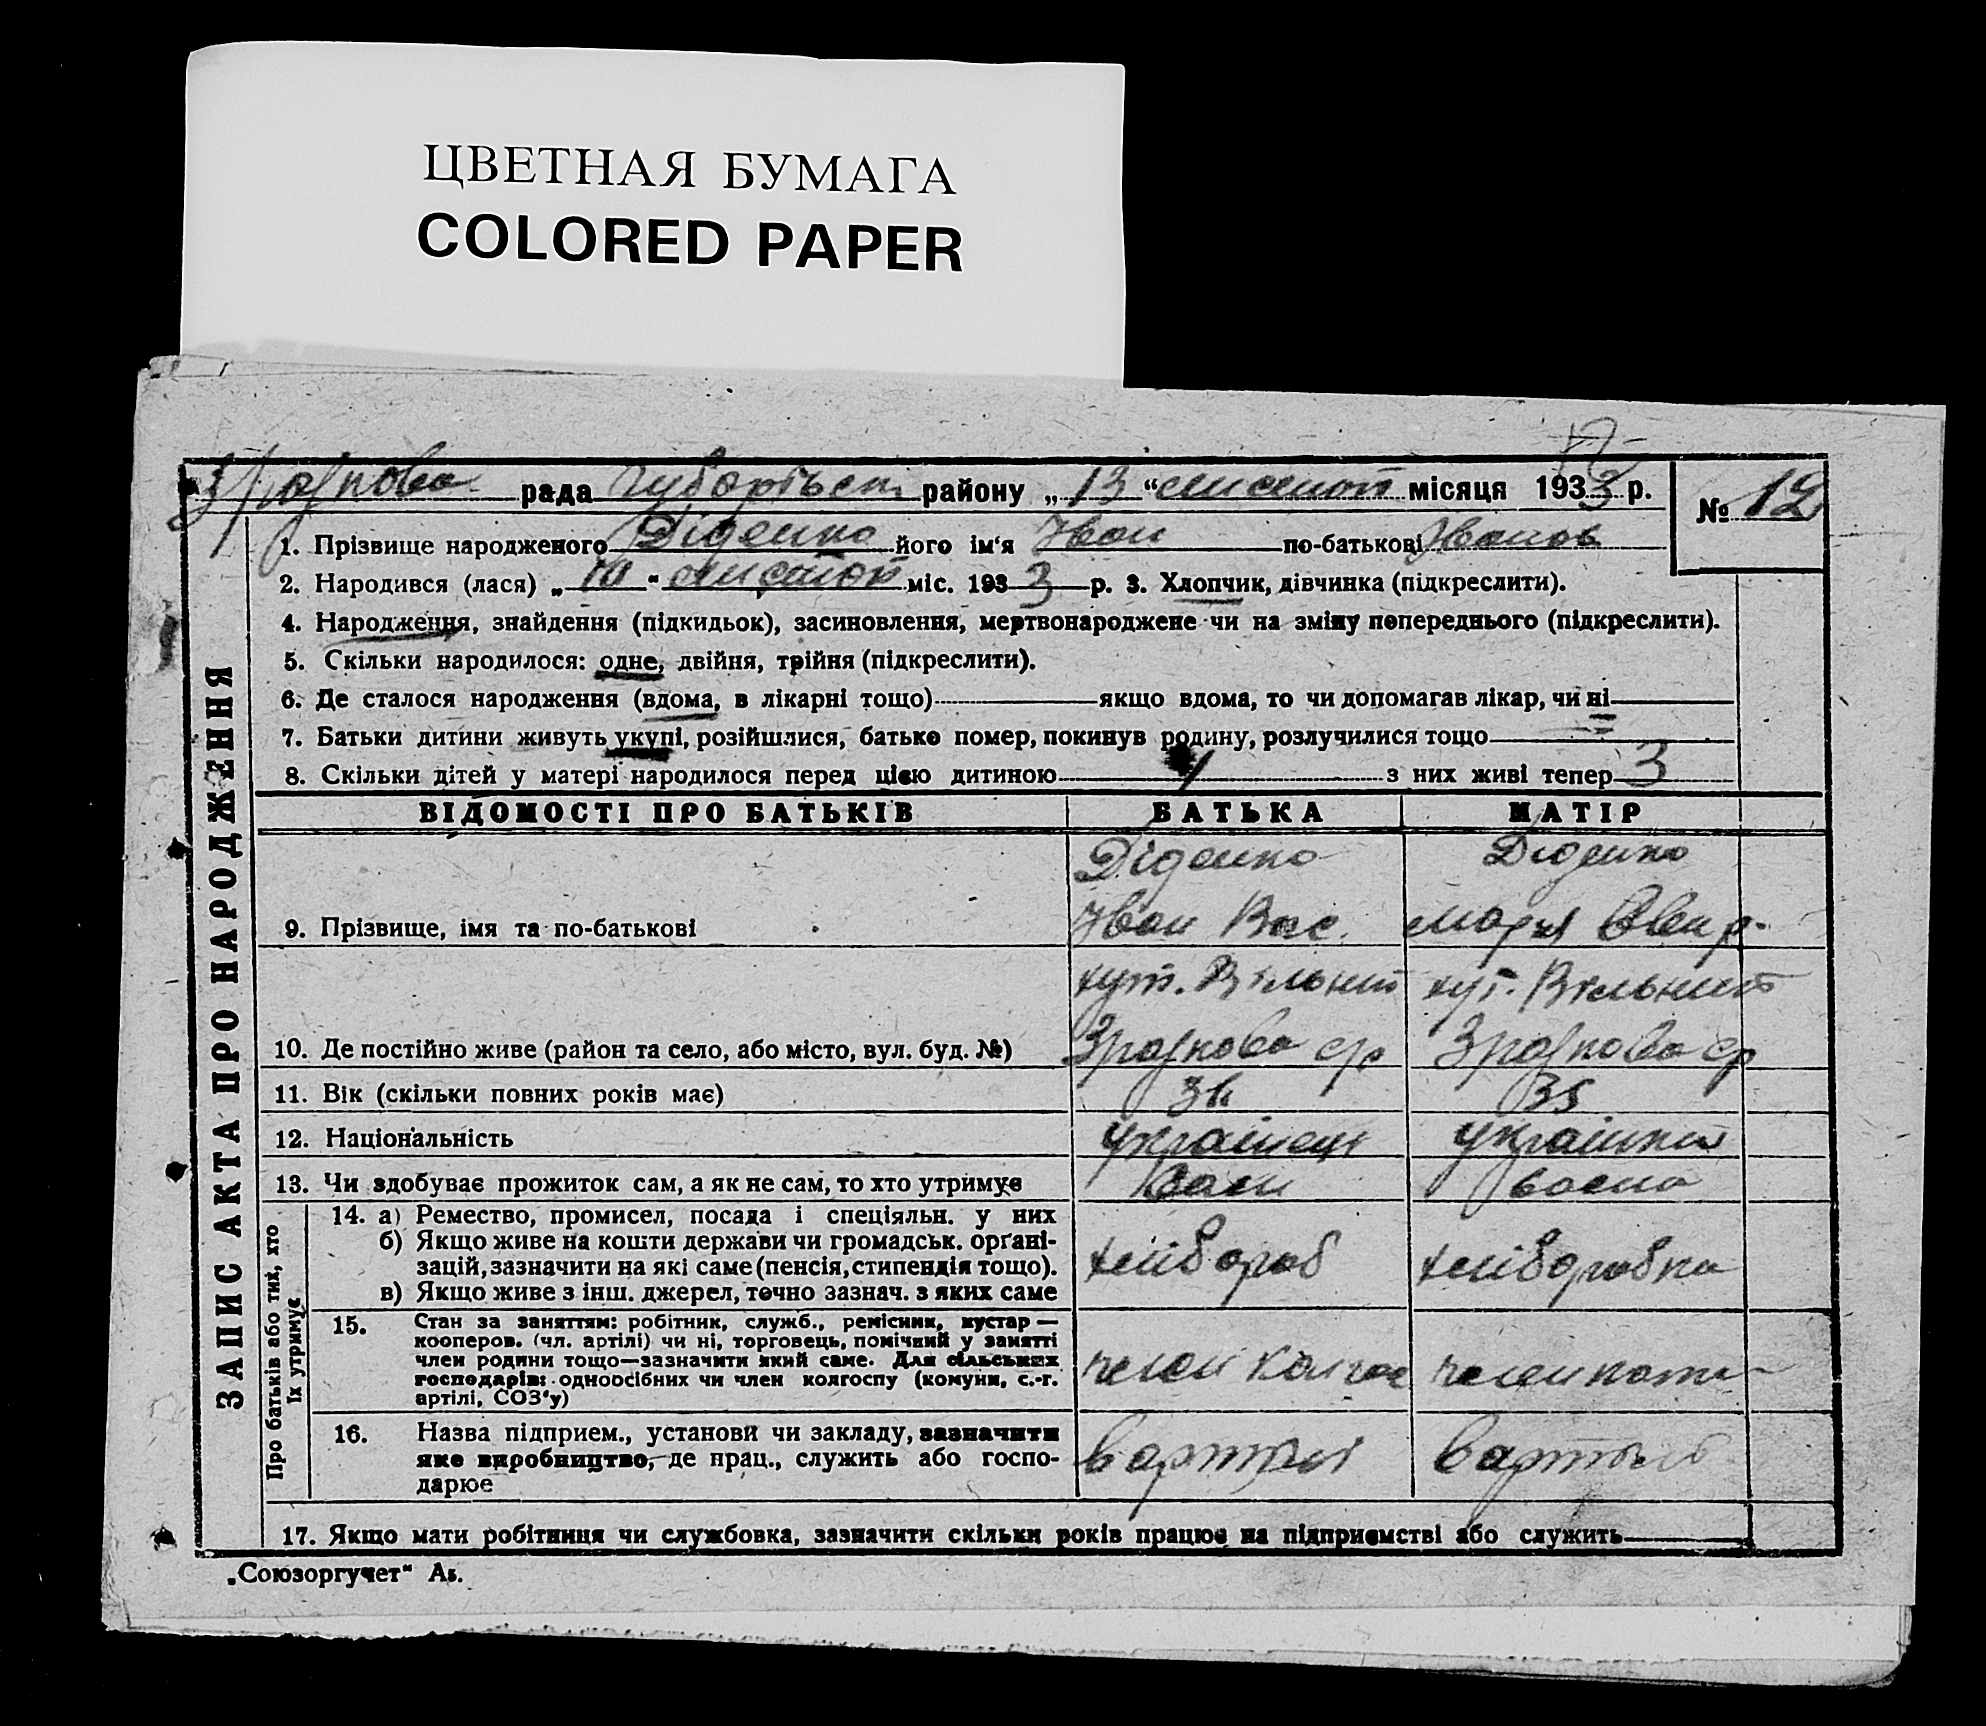 ЦВЕТНАЯ БУМАГА
COLORED PAPER
рада району „ 13 “ місяця 1933 р. № 12
1. Прізвище народженого Діденко його ім'я Іван по-батькові Іванов
2. Народився (лася) „ 10 “ міс. 1933 р. 3. Хлопчик, дівчинка (підкреслити).
4. Народження, знайдення (підкидьок), засиновлення, мертвонароджене чи на зміну попереднього (підкреслити).
5. Скільки народилося: одне, двійня, трійня (підкреслити).
6. Де сталося народження (вдома, в лікарні тощо) якщо вдома, то чи допомагав лікар, чи ні
7. Батьки дитини живуть укупі, розійшлися, батько помер, покинув родину, розлучилися тощо
8. Скільки дітей у матері народилося перед цією дитиною з них живі тепер 3
ЗАПИС АКТА ПРО НАРОДЖЕННЯ
ВІДОМОСТІ ПРО БАТЬКІВ БАТЬКА МАТІР
Діденко Діденко
9. Прізвище, імя та по-батькові Іван Вас. Марія
хут. Вільний хут. Вільний
10. Де постійно живе (район та село, або місто, вул. буд. №)
11. Вік (скільки повних років має) 35
12. Національність українець українка
13. Чи здобуває прожиток сам, а як не сам, то хто утримує
Про батьків або тих, хто
їх утримує
14. а) Ремество, промисел, посада і спеціяльн. у них
б) Якщо живе на кошти держави чи громадськ. орґані-
зацій, зазначити на які саме (пенсія, стипендія тощо).
в) Якщо живе з інш. джерел, точно зазнач. з яких саме
хлібороб хлібробка
15. Стан за заняттям: робітник, служб., ремісник, кустар —
кооперов. (чл. артілі) чи ні, торговець, помічний у занятті
член родини тощо—зазначити який саме. Для сільських
господарів: одноосібних чи член колгоспу (комуни, с.-г.
артілі, СОЗ'у)
член колгос член
16. Назва підприєм., установи чи закладу, зазначити
яке виробництво, де прац., служить або госпо-
дарює
17. Якщо мати робітниця чи службовка, зазначити скільки років працює на підприємстві або служить
„Союзоргучет“